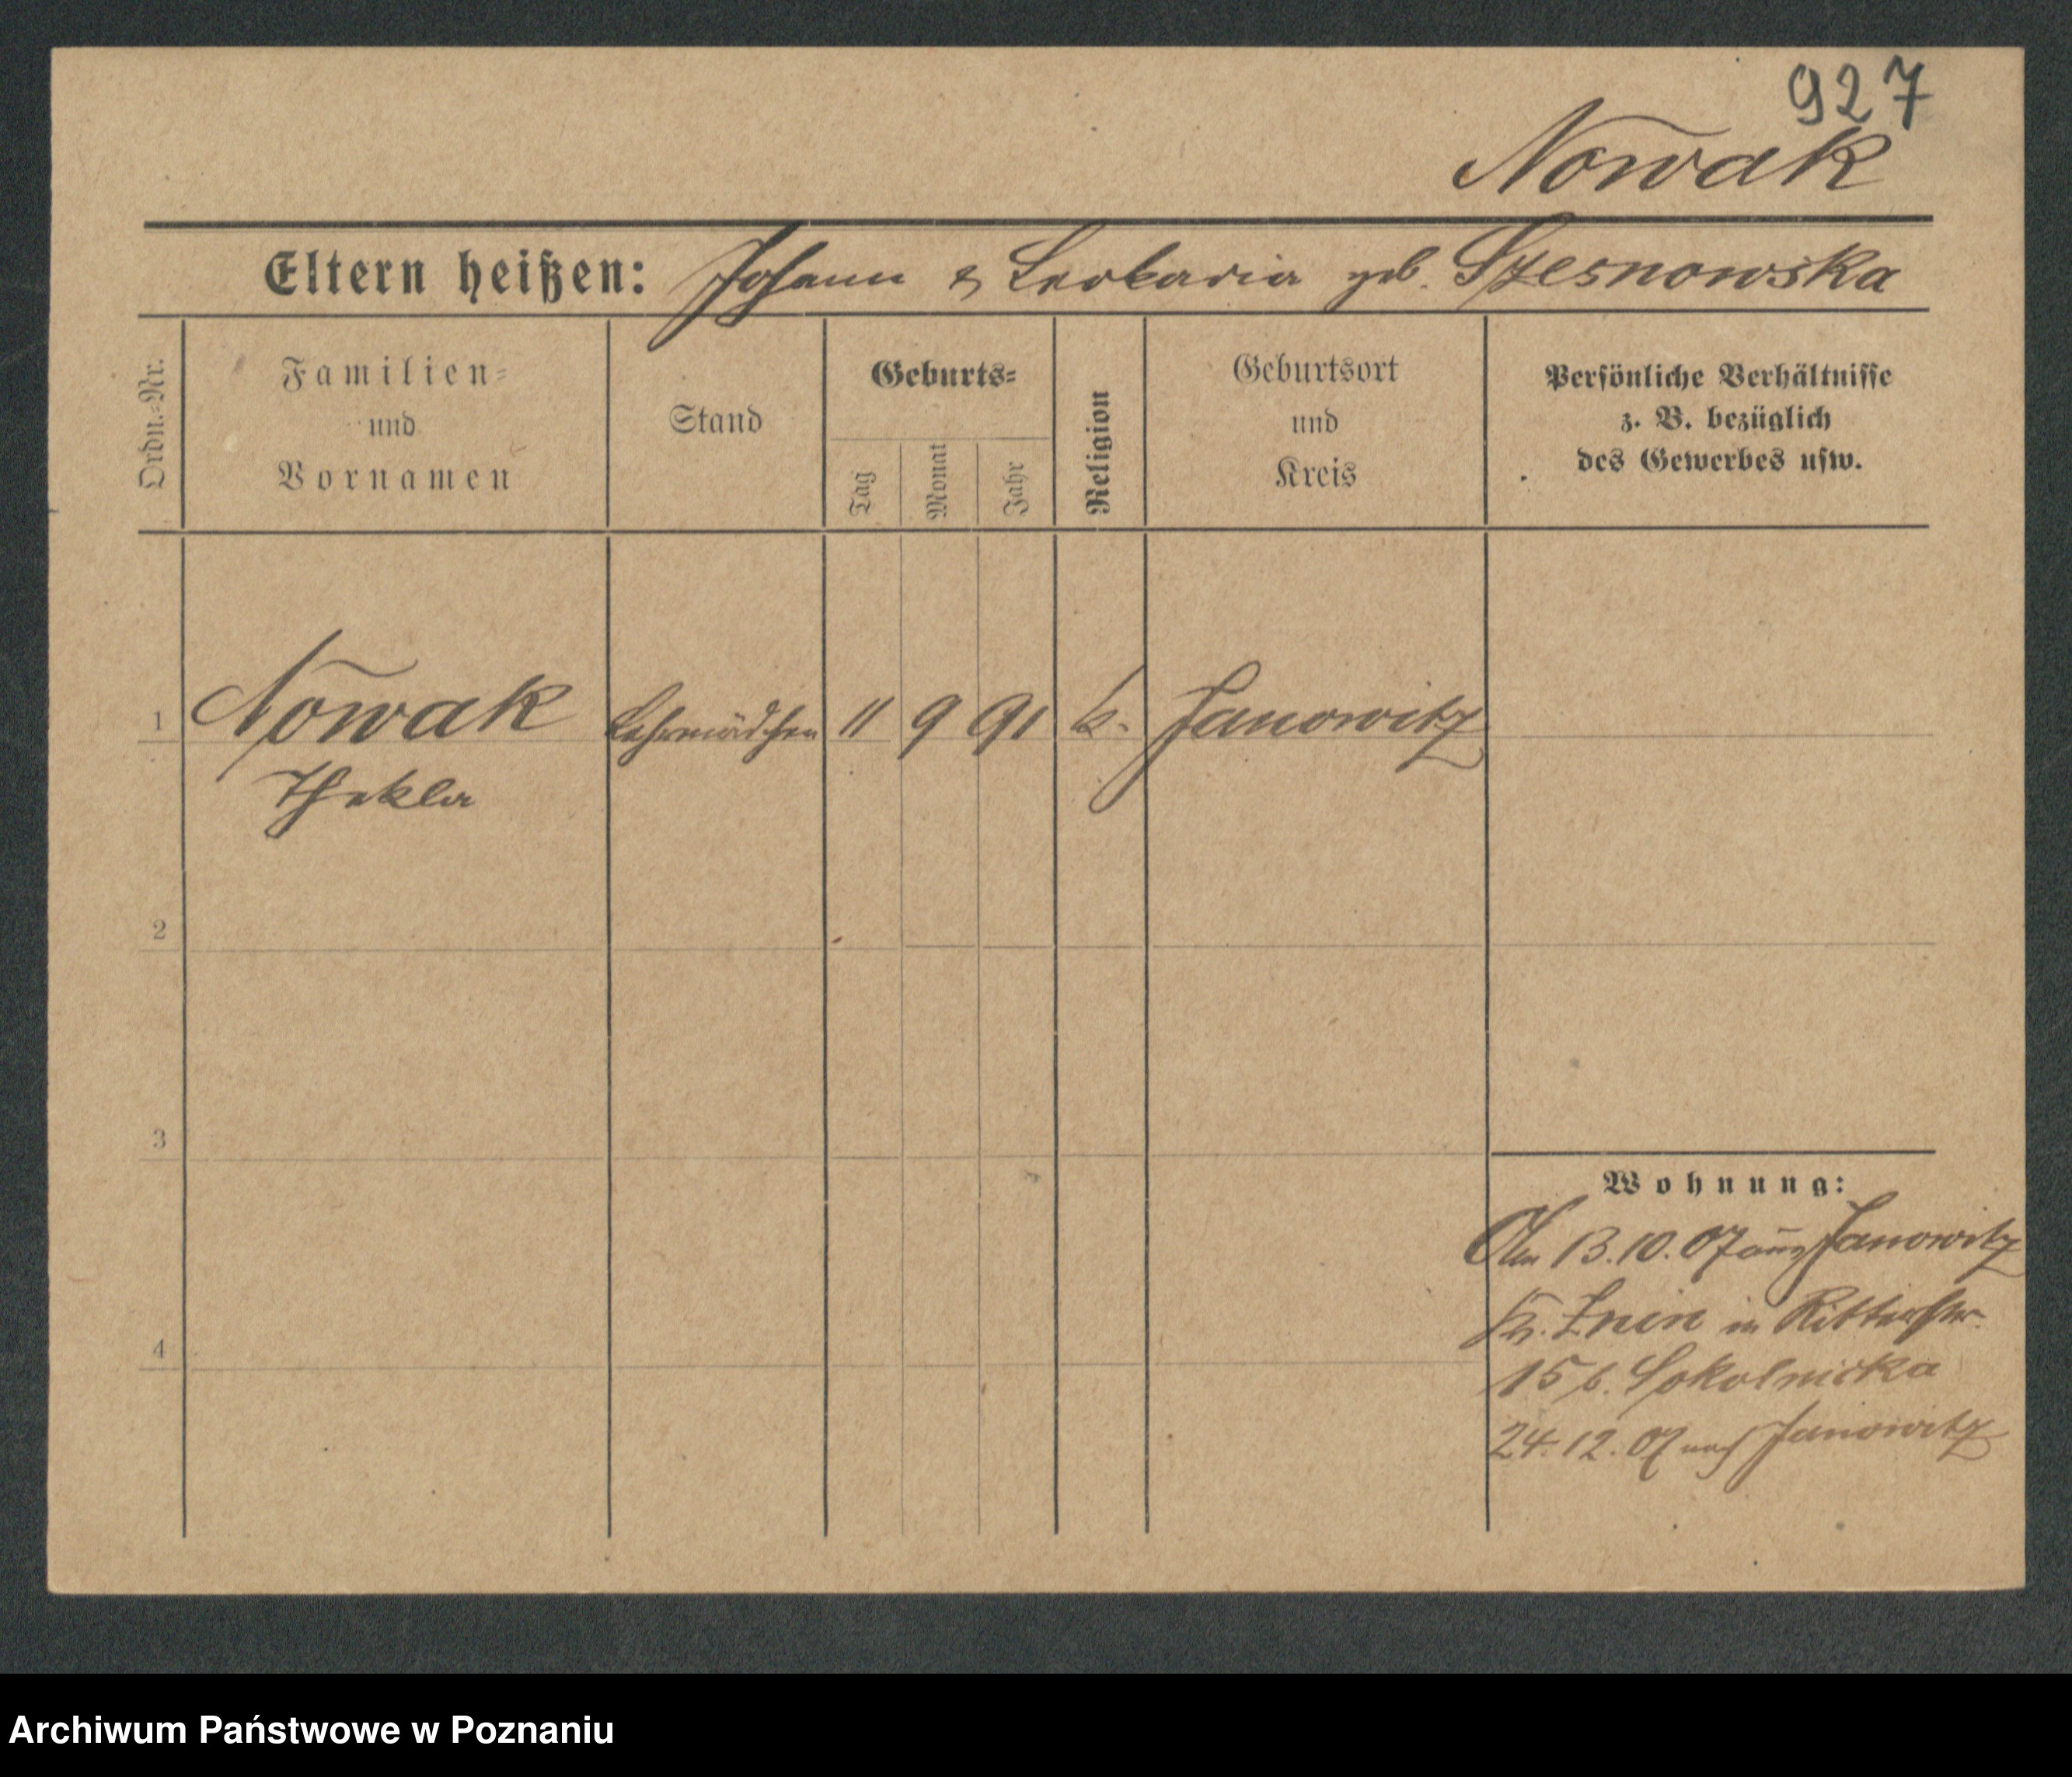 927
Nowak
Eltern heißen: Johann & Leokadia geb. Szesnowska
Ordn.-Nr.
Familien-
und
Vornamen
Stand
Geburts-
Tag
Monat
Jahr
Religion
Geburtsort
und
Kreis
Persönliche Verhältnisse
z. B. bezüglich
des Gewerbes usw.
1 Nowak Lehrmädchen 11 9 91 k. Janowitz
Thekla
2
3
4
Wohnung:
Am 13.10.07 aus Janowitz
Kr. Znin in Ritterstr.
15 b. Sokolnicka
24.12.07 nach Janowitz
Archiwum Państwowe w Poznaniu